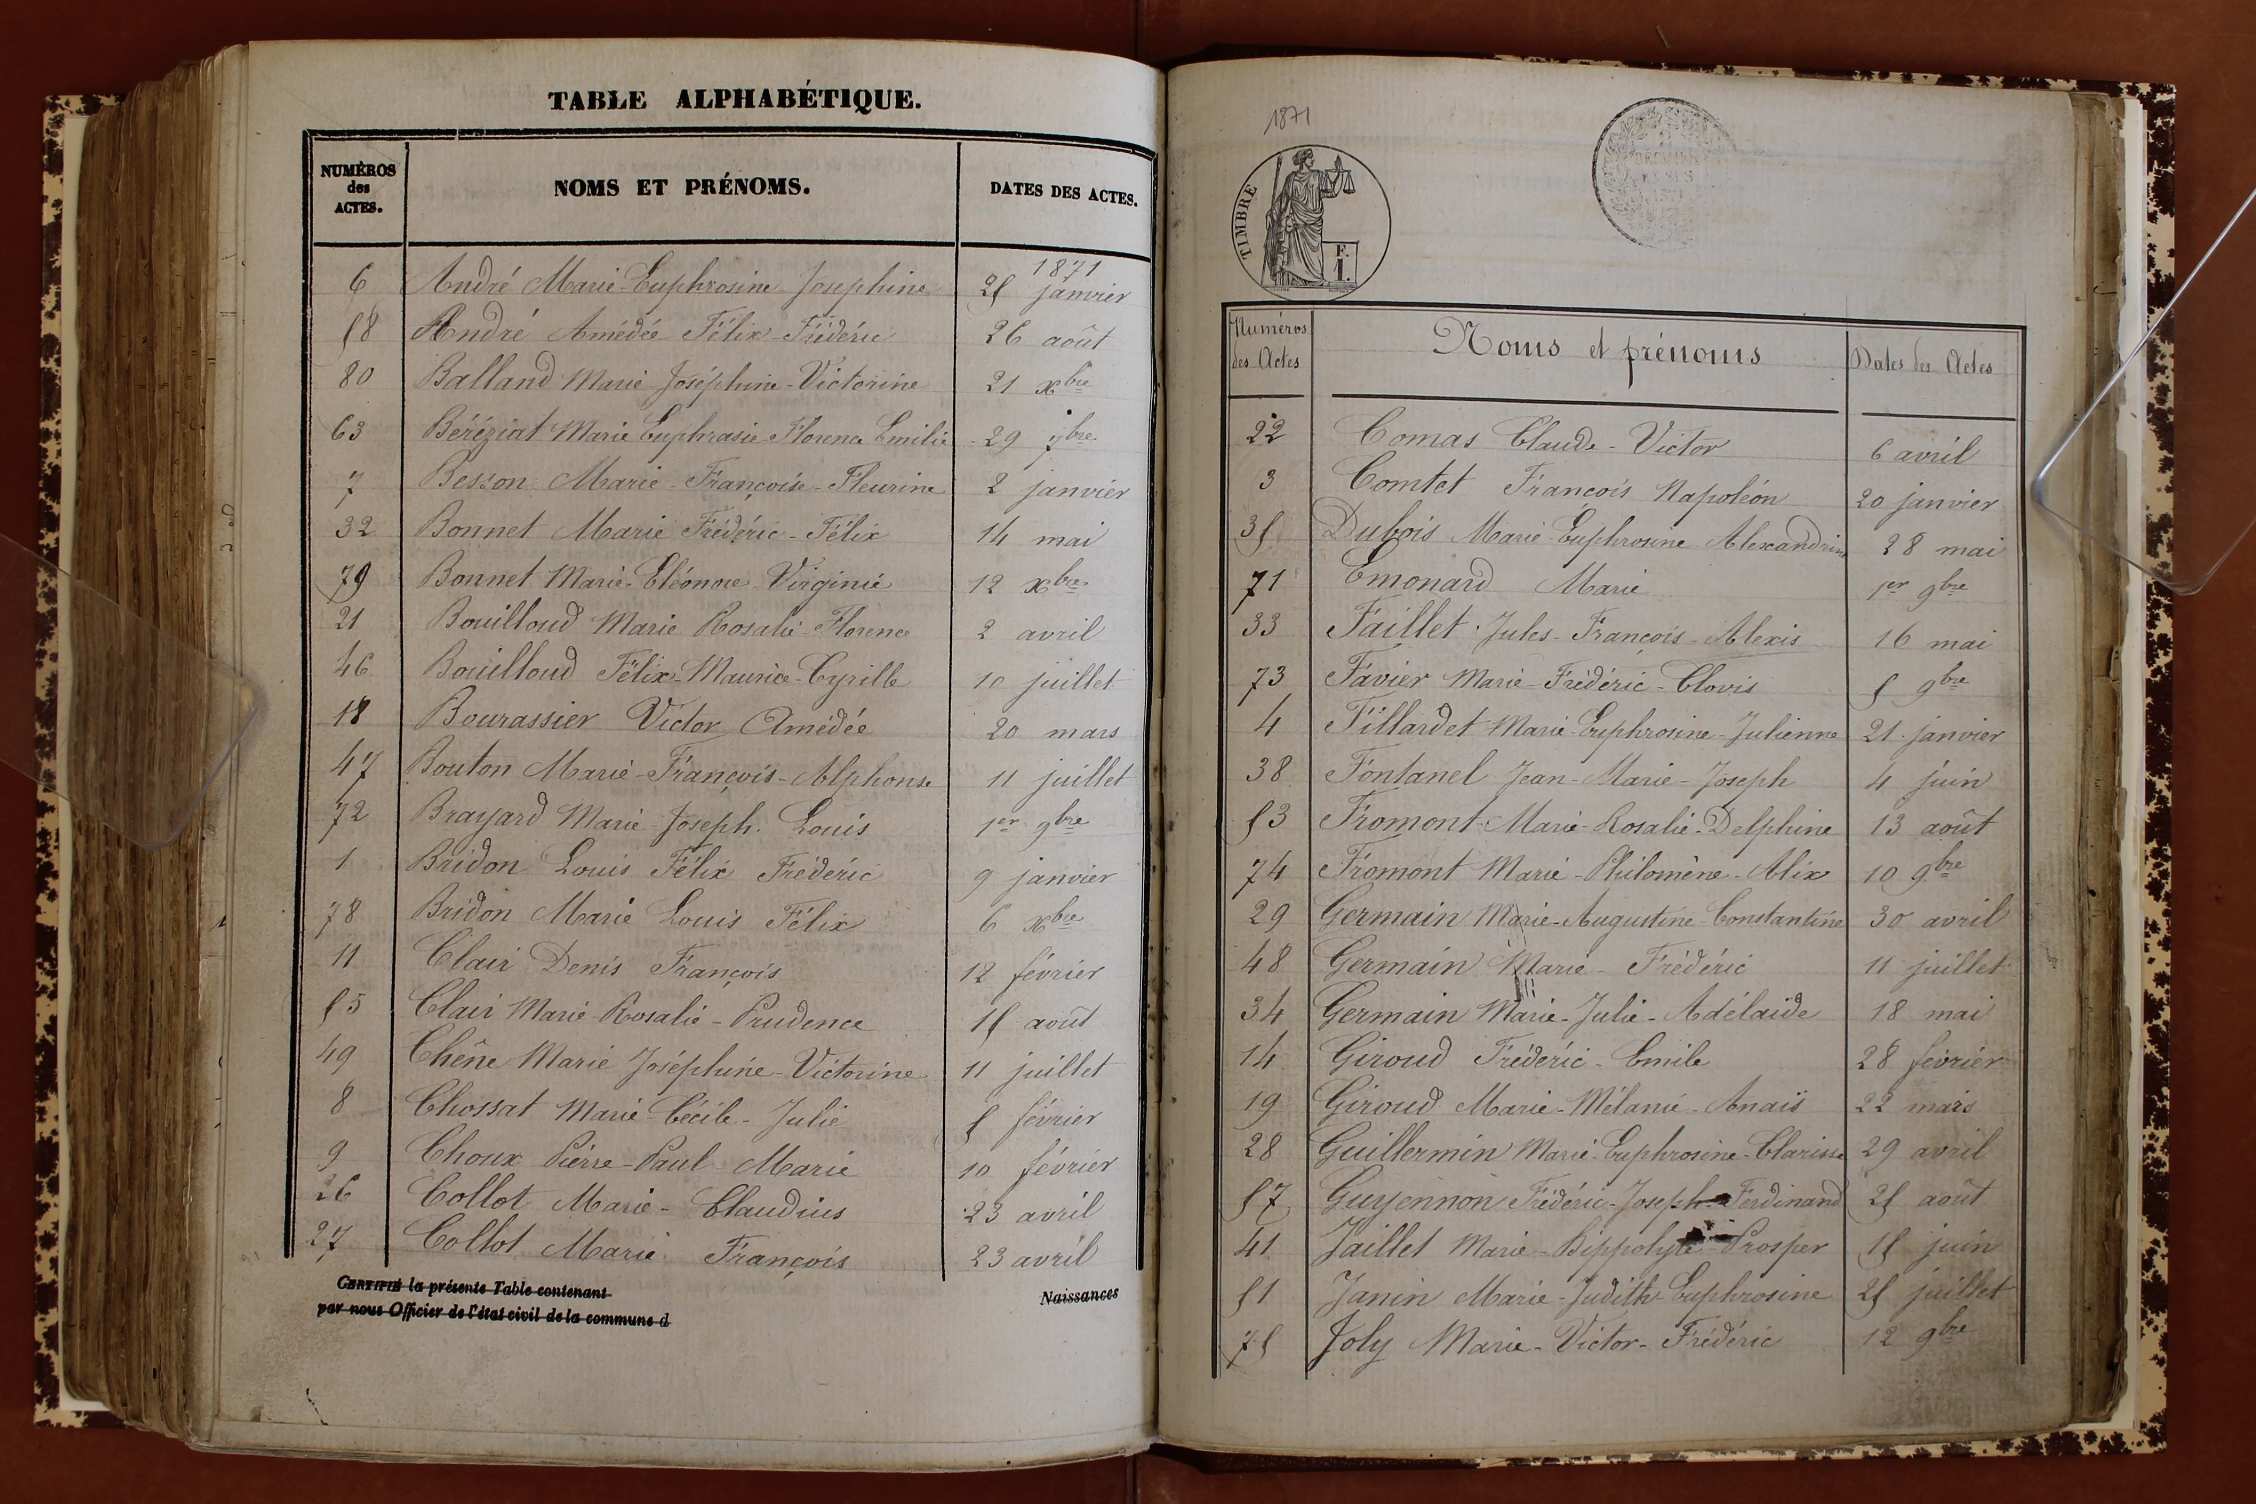 TABLE ALPHABÉTIQUE.
NUMÉROS des ACTES. NOMS ET PRÉNOMS. DATES DES ACTES.
1871
6 André Marie-Euphrosine Josephine 25 janvier
58 André Amédée Félix-Frédéric 26 août
80 Balland Marie Joséphine-Victorine 21 xbre
63 Béréziat Marie Euphrasie Florence Emilie 29 7bre
7 Besson Marie-Françoise-Fleurine 2 janvier
32 Bonnet Marie Frédéric-Félix 14 mai
79 Bonnet Marie-Eléonore Virginie 12 xbre
21 Bouilloud Marie Rosalie Florence 2 avril
46 Bouilloud Félix-Maurice-Cyrille 10 juillet
18 Bourassier Victor Amédée 20 mars
47 Bouton Marie-François-Alphonse 11 juillet
72 Brayard Marie Joseph. Louis 1er 9bre
1 Bridon Louis Félix Frédéric 9 janvier
78 Bridon Marie Louis Félix 6 xbre
11 Clair Denis François 12 février
55 Clair Marie-Rosalie-Prudence 15 août
49 Chêne Marie Joséphine-Victorine 11 juillet
8 Chossat Marie-Cécile-Julie 5 février
9 Choux Pierre-Paul Marie 10 février
26 Collot Marie-Claudius 23 avril
27 Collot Marie François 23 avril
CERTIFIÉ la présente Table contenant Naissances
par nous Officier de l'état civil de la commune d
1871
TIMBRE
F.
1.
Numéros des Actes Noms et prénoms Dates des Actes
22 Comas Claude-Victor 6 avril
3 Comtet François Napoléon 20 janvier
35 Dubois Marie-Euphrosine Alexandrine 28 mai
71 Emonard Marie 1er 9bre
33 Faillet Jules-François-Alexis 16 mai
73 Favier Marie-Frédéric-Clovis 5 9bre
4 Fillardet Marie-Euphrosine-Julienne 21 janvier
38 Fontanel Jean-Marie-Joseph 4 juin
53 Fromont Marie-Rosalie-Delphine 13 août
74 Fromont Marie-Philomène-Alix 10 9bre
29 Germain Marie-Augustine-Constantine 30 avril
48 Germain Marie-Frédéric 11 juillet
34 Germain Marie-Julie-Adélaide 18 mai
14 Giroud Frédéric-Emile 28 février
19 Giroud Marie-Mélanie-Anaïs 22 mars
28 Guillermin Marie-Euphrosine-Clarisse 29 avril
57 Guyennon Frédéric-Joseph Ferdinand 25 août
41 Jaillet Marie-Hippolyte-Prosper 15 juin
51 Janin Marie-Judith Euphrosine 25 juillet
75 Joly Marie-Victor-Frédéric 12 9bre